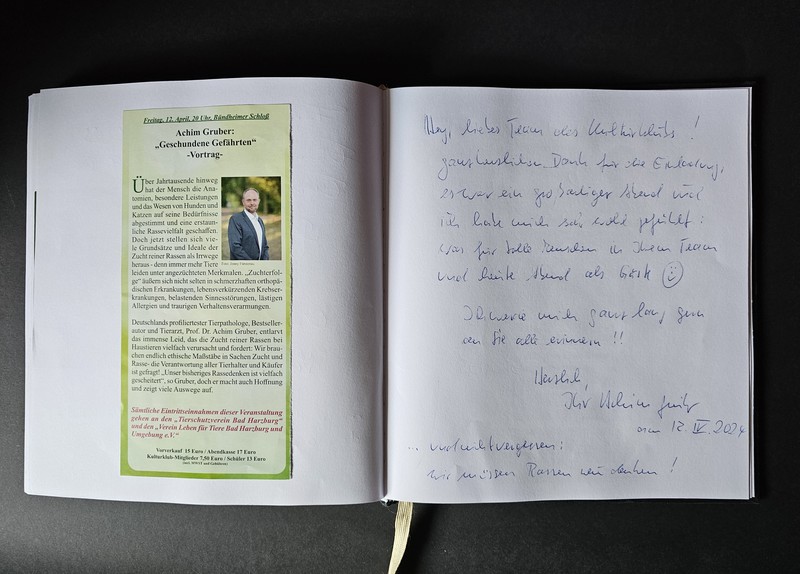 Freitag, 12. April, 20 Uhr, Bündheimer Schloß
Achim Gruber:
„Geschundene Gefährten“
-Vortrag-
Über Jahrtausende hinweg
hat der Mensch die Ana-
tomien, besondere Leistungen
und das Wesen von Hunden und
Katzen auf seine Bedürfnisse
abgestimmt und eine erstaun-
liche Rassevielfalt geschaffen.
Doch jetzt stellen sich vie-
le Grundsätze und Ideale der
Zucht reiner Rassen als Irrwege
heraus - denn immer mehr Tiere
leiden unter angezüchteten Merkmalen. „Zuchterfol-
ge“ äußern sich nicht selten in schmerzhaften orthopä-
dischen Erkrankungen, lebensverkürzenden Krebser-
krankungen, belastenden Sinnesstörungen, lästigen
Allergien und traurigen Verhaltensverarmungen.
Deutschlands profiliertester Tierpathologe, Bestseller-
autor und Tierarzt, Prof. Dr. Achim Gruber, entlarvt
das immense Leid, das die Zucht reiner Rassen bei
Haustieren vielfach verursacht und fordert: Wir brau-
chen endlich ethische Maßstäbe in Sachen Zucht und
Rasse- die Verantwortung aller Tierhalter und Käufer
ist gefragt! „Unser bisheriges Rassedenken ist vielfach
gescheitert“, so Gruber, doch er macht auch Hoffnung
und zeigt viele Auswege auf.
Sämtliche Eintrittseinnahmen dieser Veranstaltung
gehen an den „Tierschutzverein Bad Harzburg“
und den „Verein Leben für Tiere Bad Harzburg und
Umgebung e.V.“
Vorverkauf 15 Euro / Abendkasse 17 Euro
Kulturklub-Mitglieder 7,50 Euro / Schüler 13 Euro
(inkl. MWST und Gebühren)
Hey, liebes Team des Kulturklubs!
ganz herzlichen Dank für die Einladung,
es war ein großartiger Abend und
ich habe mich sehr wohl gefühlt:
was für tolle Menschen in Ihrem Team
und heute Abend als Gäste
Ich werde mich ganz lang gern
an Sie alle erinnern!!
Herzlich,
Ihr Achim Gruber
am 12. IV. 2024
... und nicht vergessen:
wir müssen Rassen neu denken!